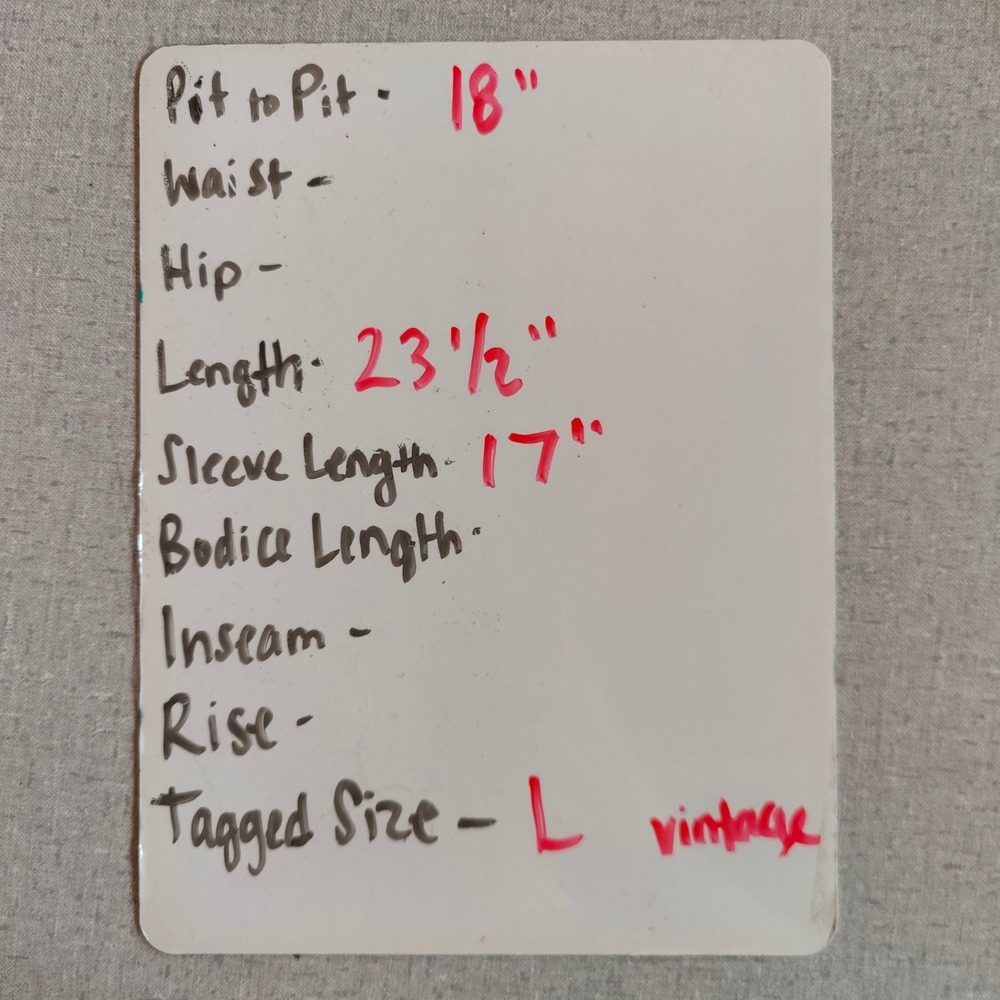 Pit to Pit - 18"
Waist -
Hip -
Length - 23 1/2"
Sleeve Length - 17"
Bodice Length -
Inseam -
Rise -
Tagged Size - L vintage